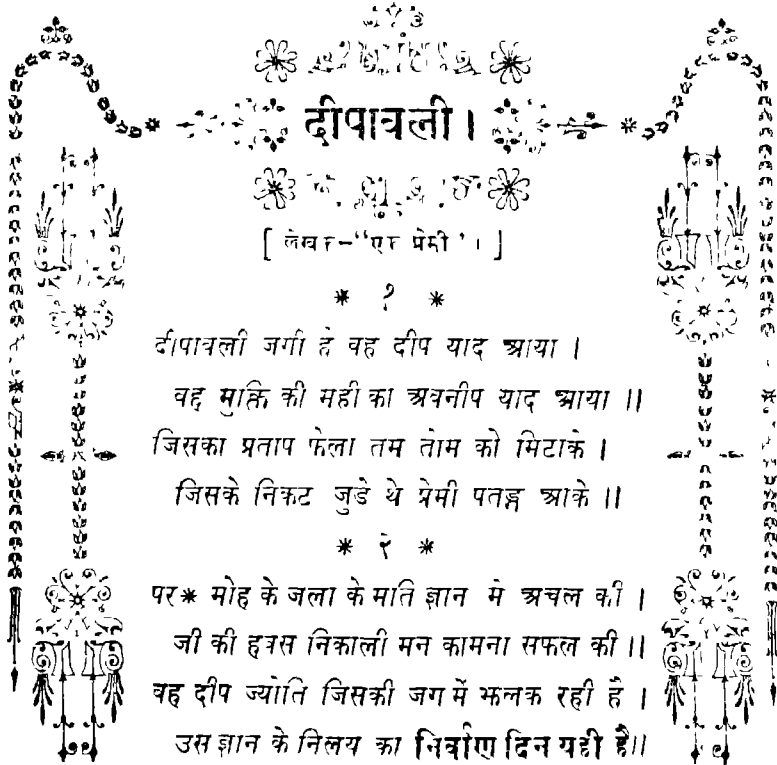 दीपावली।
[ लेखक-“एक प्रेमी”। ]
* १ *
दीपावली जगी है वह दीप याद आया ।
वह मुक्ति की मही का अवनीप याद आया ॥
जिसका प्रताप फैला तम तोम को मिटाके ।
जिसके निकट जुडे थे प्रेमी पतङ्ग आके ॥
* २ *
पर* मोह के जला के मति ज्ञान मे अचल की ।
जी की हवस निकाली मन कामना सफल की ॥
वह दीप ज्योति जिसकी जग में झलक रही है ।
उस ज्ञान के निलय का निर्वाण दिन यही है॥